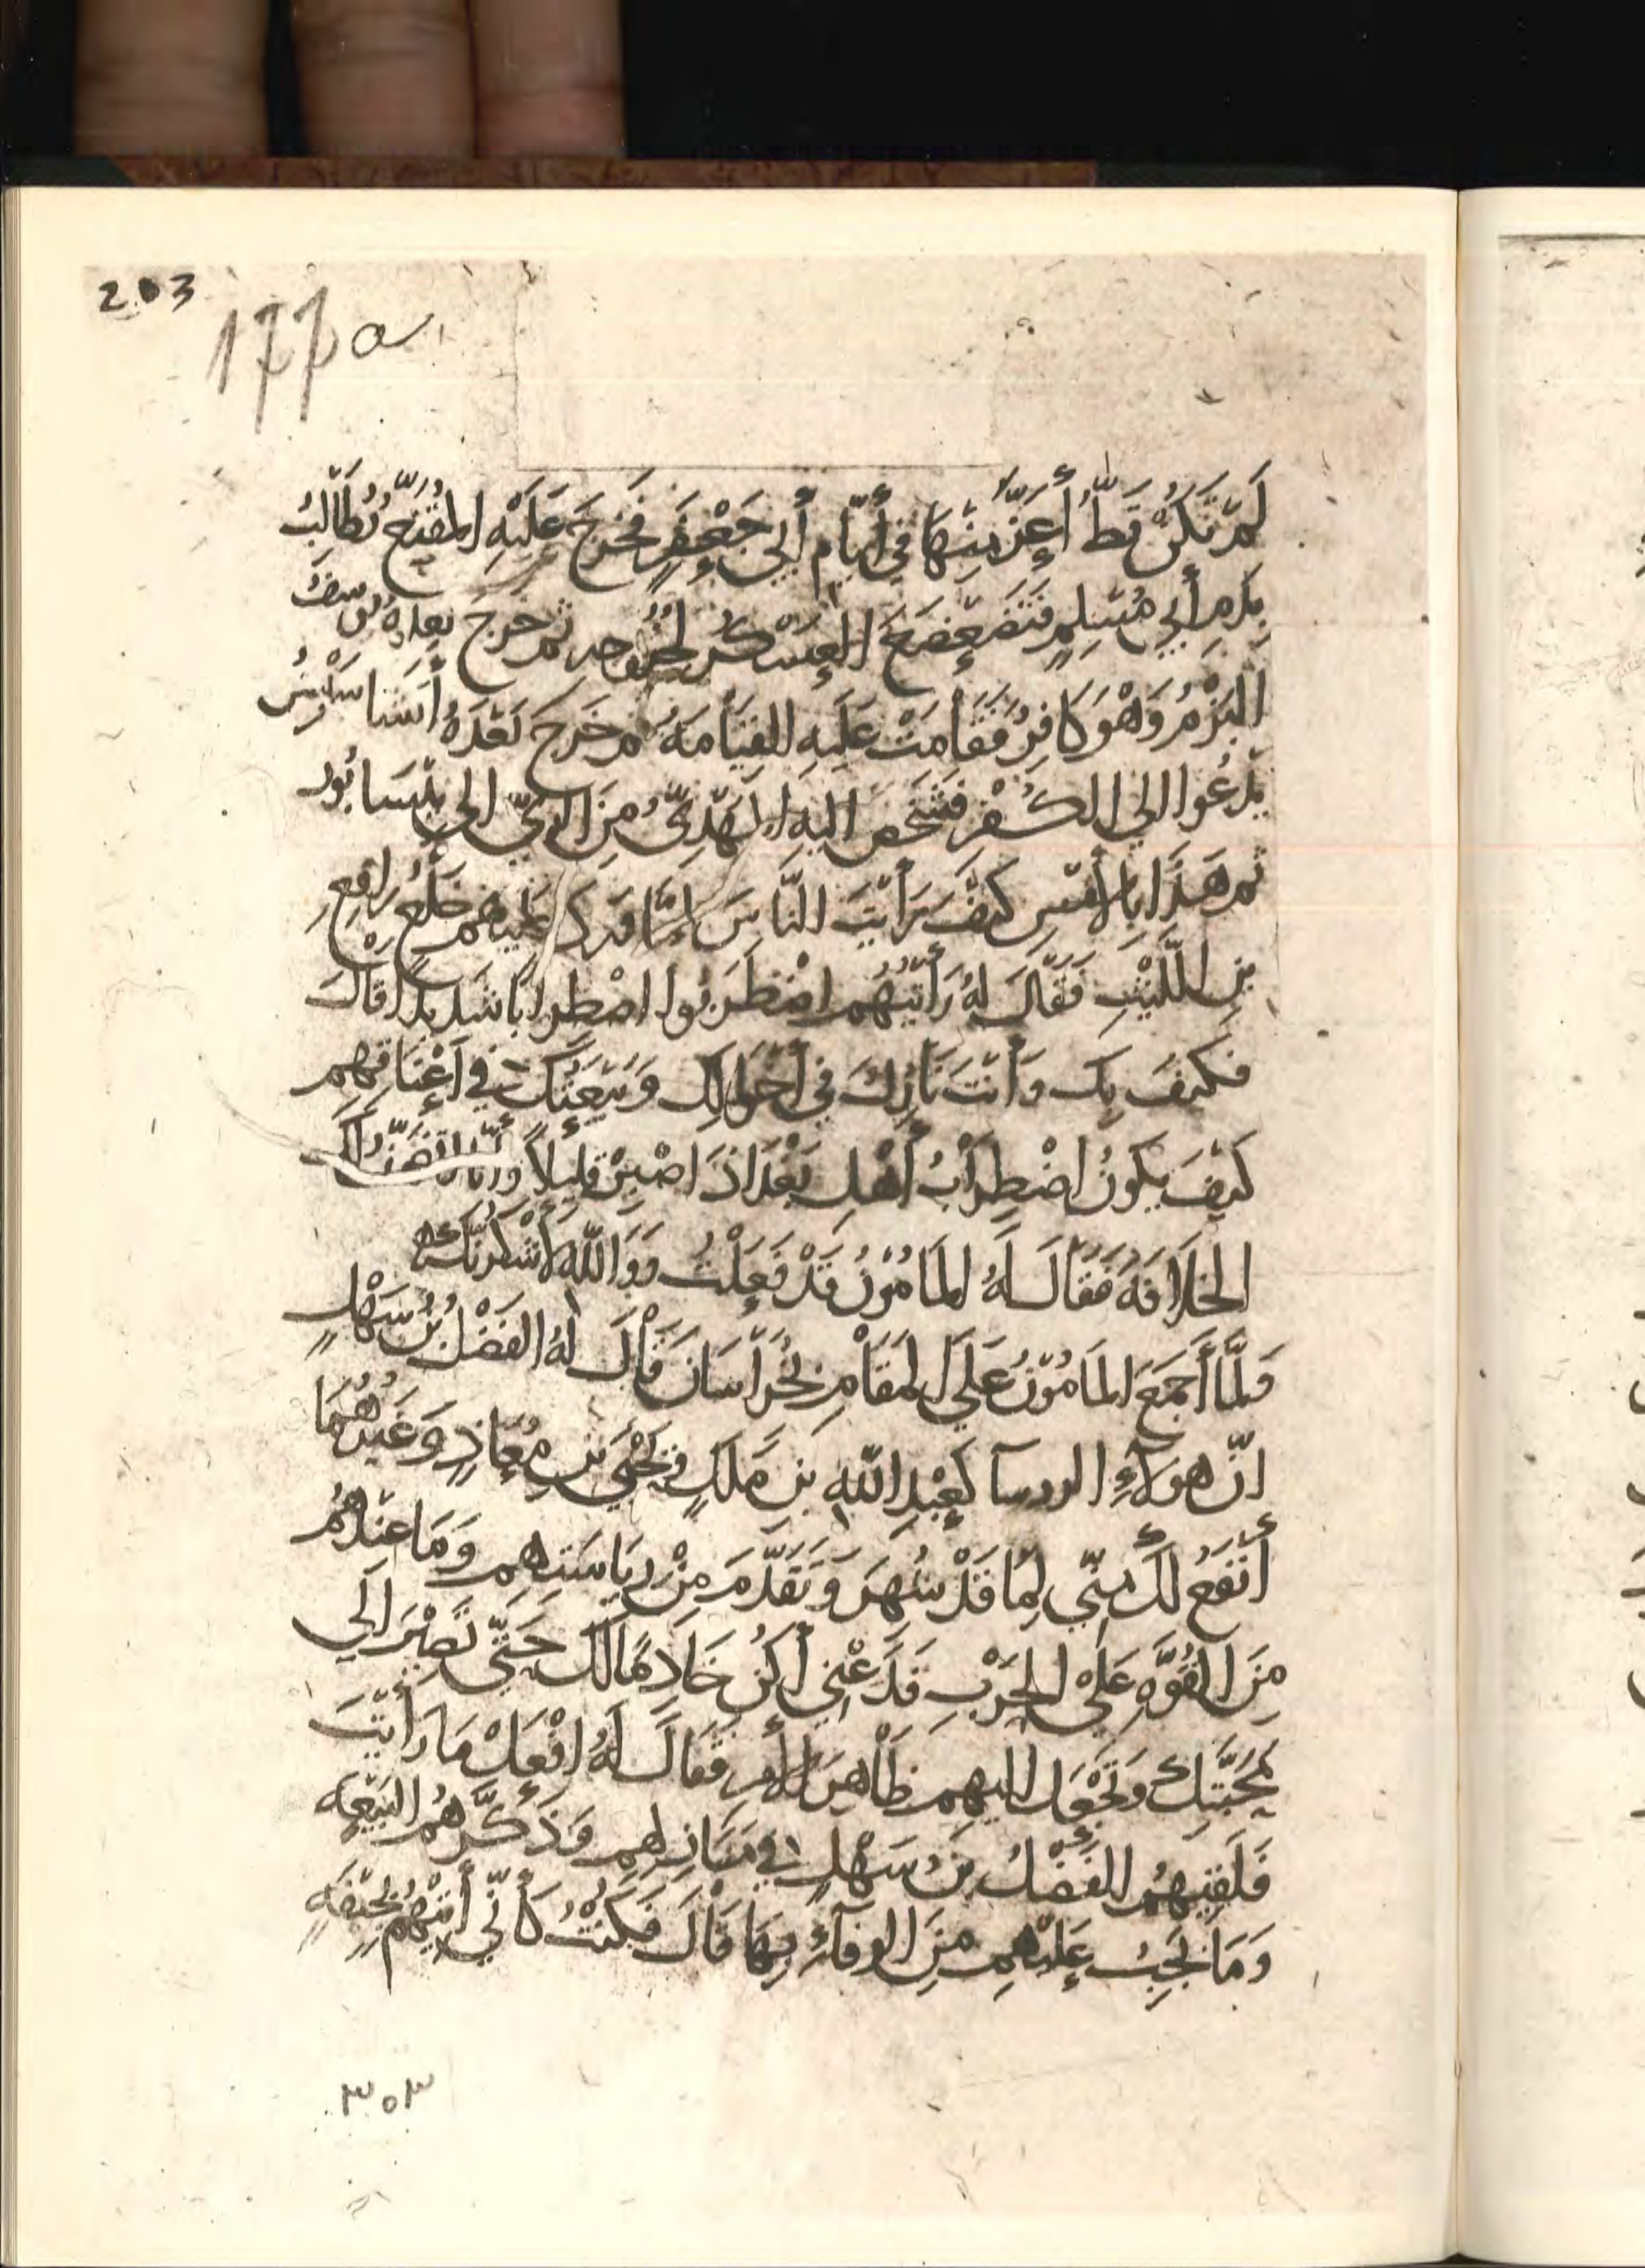 203
177a
لَمْ تَكُنْ قَطُّ أَعَزَّ مِنْهَا فِي أَيَّامِ أَبِي جَعْفَرٍ فَخَرَجَ عَلَيْهِ المُقَنَّع يُطَالِبُ
بِدَمِ أَبِي مُسْلِمٍ فَتَضَعْضَعَ العَسْكَرُ لِخُرُوجِهِ ثم خَرَجَ بَعْدَهُ يُوسفُ
البَرْمُ وَهْوَ كَافِرٌ فَقَامَتْ عَلَيهِ القِيَامَةُ ثم خَرَجَ بَعْدَهُ أَسْتَاسيسُ
يَدْعُوا الي الكُفْرِ فَشَخَصَ اليهِ المَهْدِيُّ مِنَ الرَيِّ الي نَيْسَابُور
ثم هَذَا بِالأَمْسِ كَيْفَ رَأَيْتَ النَّاسَ لَمَّا وَرَدَ عَلَيْهم خَلْعُ رَافِعِ
بْنِ اللَّيْثِ فَقَالَ لَهُ رَأَيْتُهُم اضْطَرَبُوا اضْطِرَابًا شَدِيدًا قَالَ
فكَيْفَ بِكَ وَأَنْتَ نَازِلٌ فِي أَخْوَالِكَ وَبَيْعَتُكَ فِي أَعْنَاقِهِم
كَيْفَ يَكُونُ اضْطِرَابُ أَهْلِ بَغْدَاذَ اصْبِرْ قَلِيلاً وأنا أَتَضَمَّنُ لَكَ
الخِلَافَةَ فَقَالَ لَهُ المَامُونُ قَدْ فَعَلْتُ وَوَاللّهِ لأَشْكُرَنَّكَ
وَلَمَّا أَجْمَعَ المَامُونُ عَلَي المَقَامِ بِخُرَاسَانَ قَالَ لَهُ الفَضْلُ بْنُ سَهْلٍ
انّ هولاءِ الروسا كَعَبْدِ اللّهِ بْنِ مَلِكٍ وَيَحْيَي بْنِ مُعَاذٍ وَغَيْرِهُمَا
أَنْفَعُ لَكَ مِنِّي لِمَا قَدْ شُهِرَ وَتَقَدَّمَ مِنْ رِيَاسَتِهم وَمَا عِنْدَهُم
مِنَ القُوَّةِ عَلَي الحَرْبِ فَدَعْنِي أَكُنْ خَادِمًا لَكَ حَتَّي تَصِيْرَ الَي
مَحَبَّتِكَ وَتَجْعَل اليهم ظَاهِرَ الأَمْرِ فَقَالَ لَهُ افْعَلْ مَا رَأَيْتَ
فَلَقِيَهُم الفَضْلُ بْنُ سَهْلٍ فِي مَنَازِلِهم وَذَكَّرَهُم البَيْعَة
وَمَا يَجِبُ عَلَيْهم مِنَ الوفَآءِ بِهَا قَالَ فَكُنْتُ كَأَنِّي أَتَيْتُهُم بِجِيْفَةٍ
٣٠٣